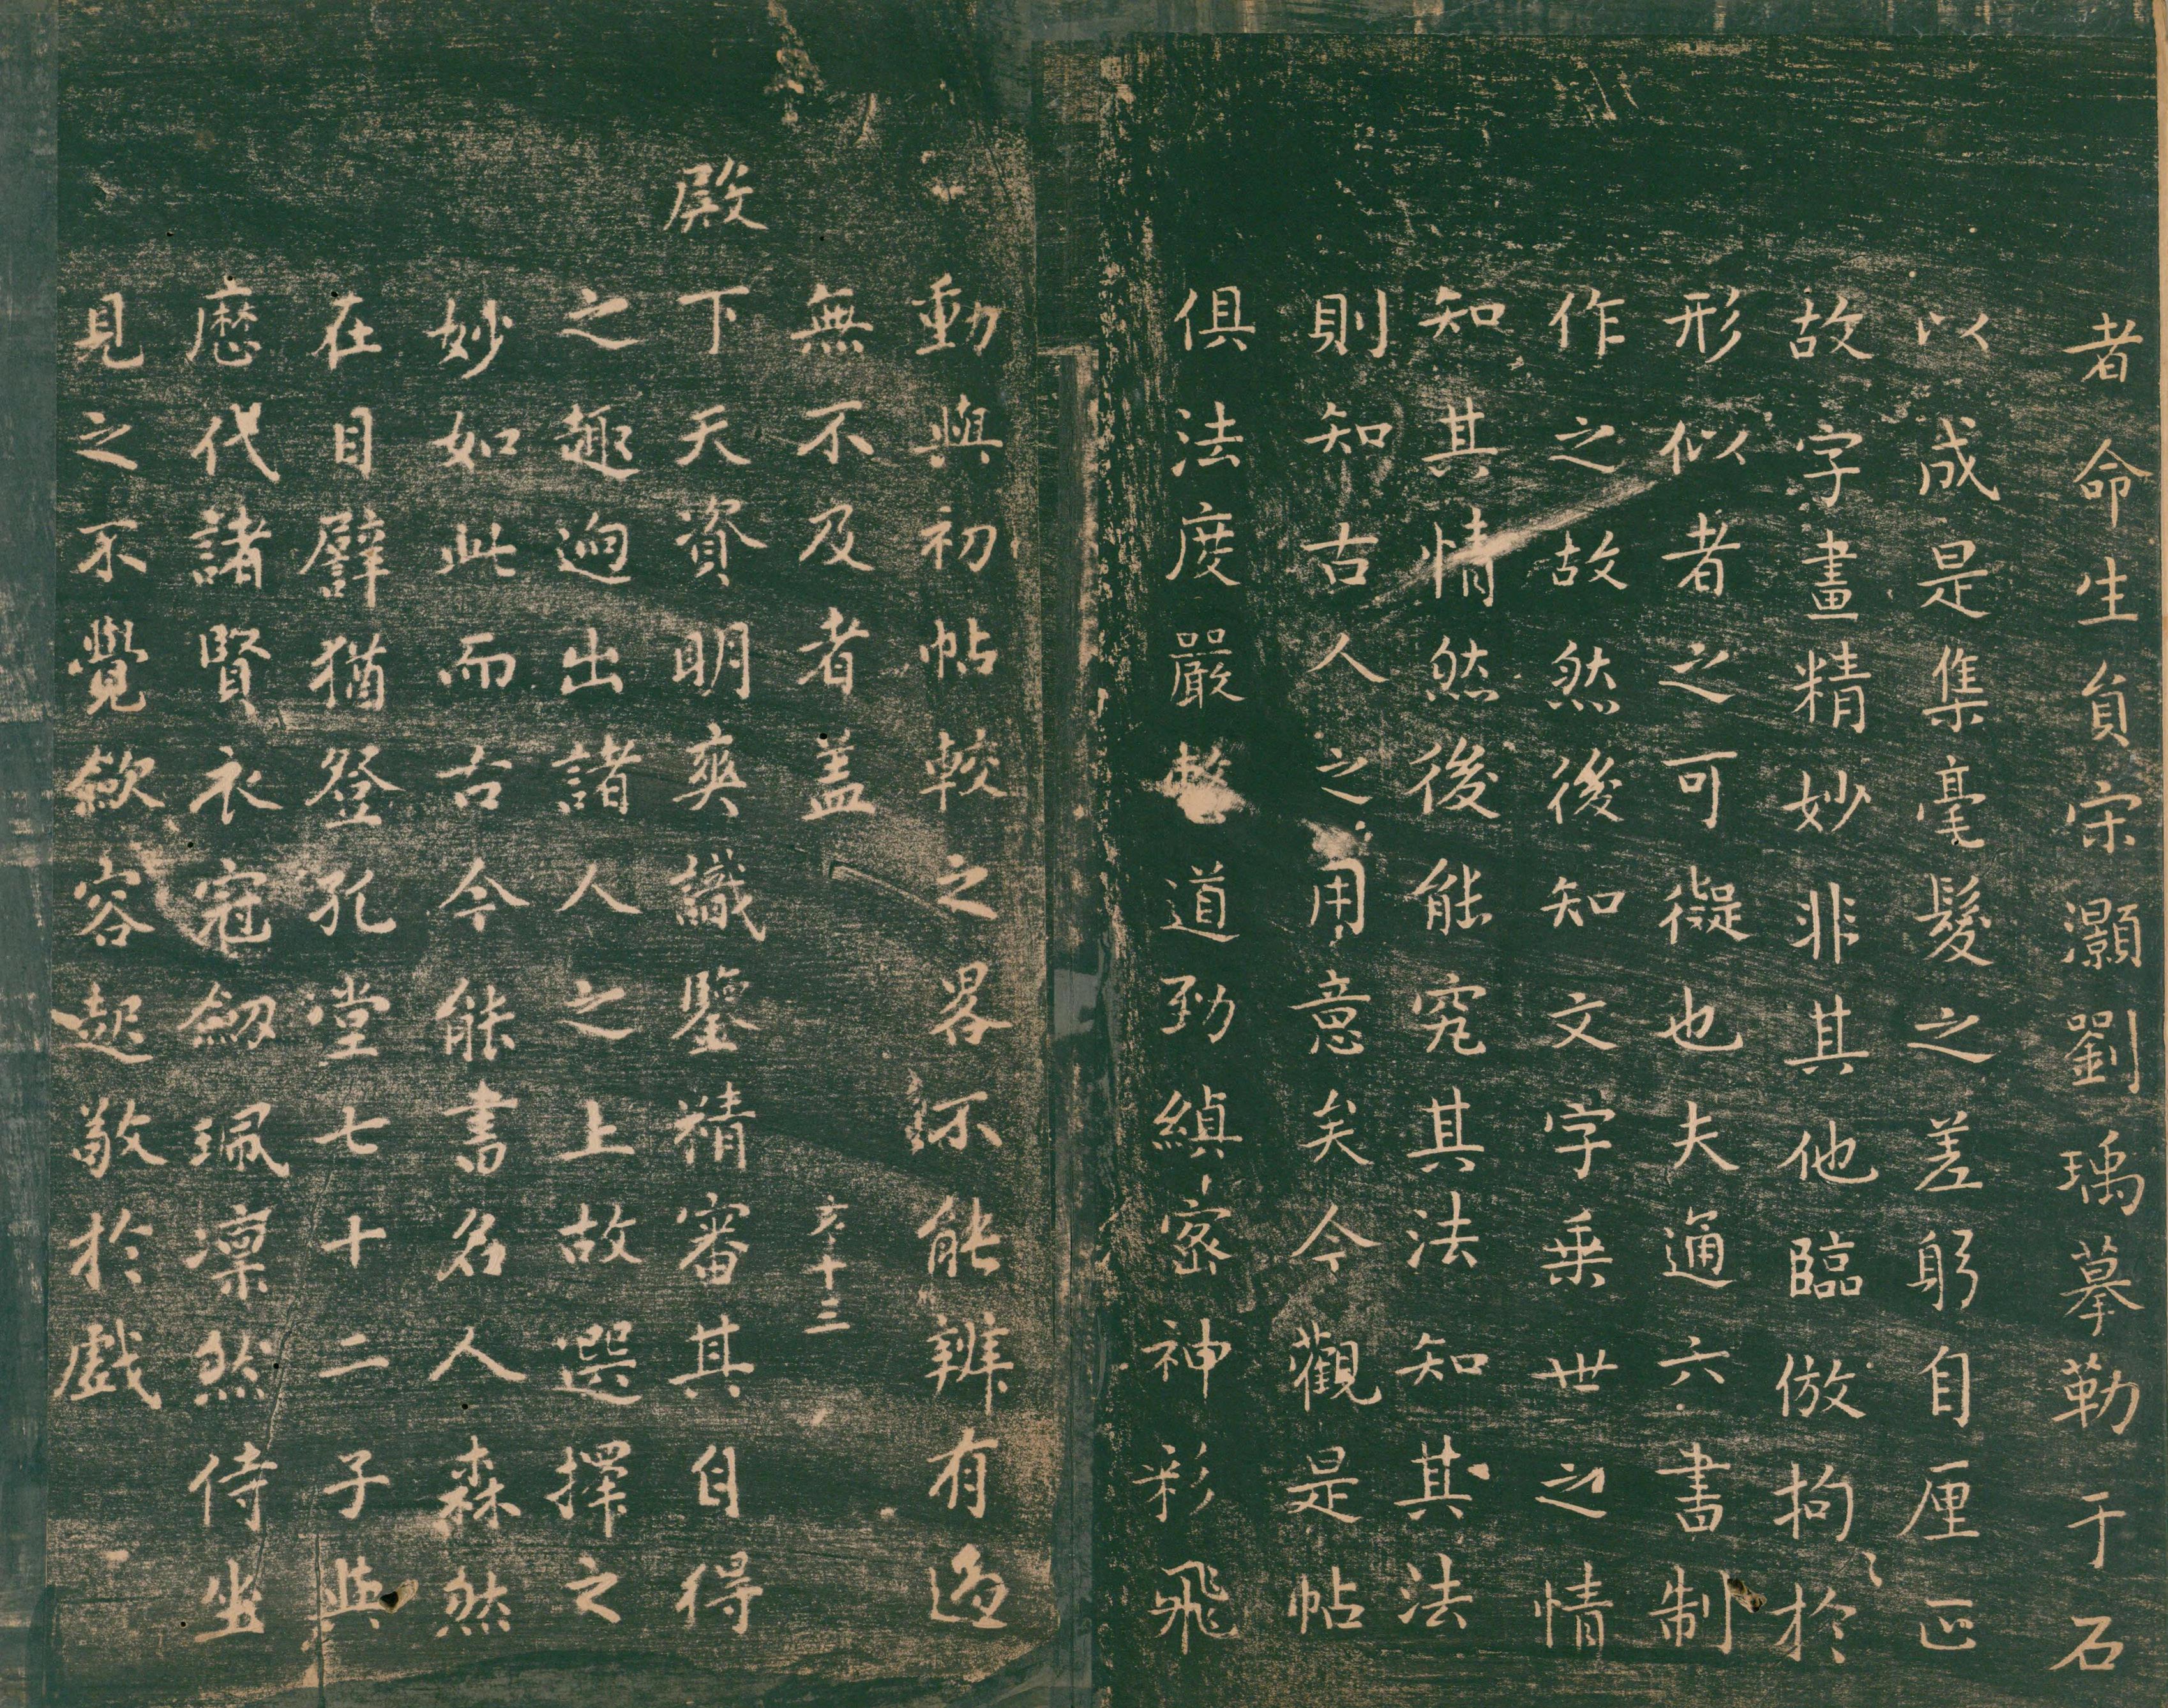 者命生負宋灝劉瑀摹勒于石
以成是集毫髮之差躬自厘正
故字畫精妙非其他臨倣拘拘於
形似者之可擬也夫通六書制
作之故然後知文字乗世之情
知其情然後能究其法知其法
則知古人之用意矣今觀是帖
俱法度嚴整道勁縝密神彩飛
動與初帖較之畧不能辨有過
無不及者盖
亥十三
殿下天資明爽識鑒精審其自得
之趣逈出諸人之上故選擇之
妙如此而古今能書名人森然
在目譬猶登孔堂七十二子與
歷代諸賢衣冠劒珮凜然侍坐
見之不覺歛容起敬於戲